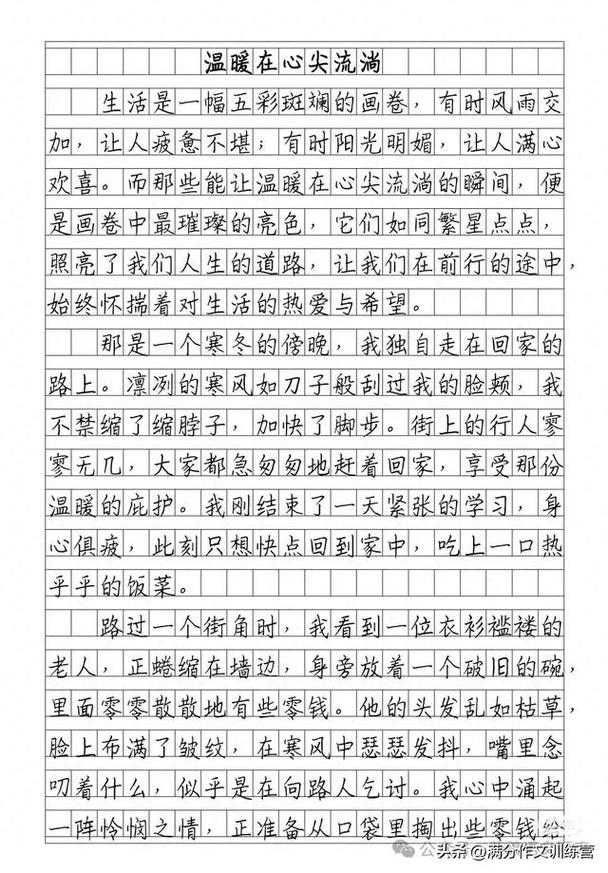 温暖在心尖流淌
生活是一幅五彩斑斓的画卷，有时风雨交
加，让人疲惫不堪；有时阳光明媚，让人满心
欢喜。而那些能让温暖在心尖流淌的瞬间，便
是画卷中最璀璨的亮色，它们如同繁星点点，
照亮了我们人生的道路，让我们在前行的途中，
始终怀揣着对生活的热爱与希望。
那是一个寒冬的傍晚，我独自走在回家的
路上。凛冽的寒风如刀子般刮过我的脸颊，我
不禁缩了缩脖子，加快了脚步。街上的行人寥
寥无几，大家都急匆匆地赶着回家，享受那份
温暖的庇护。我刚结束了一天紧张的学习，身
心俱疲，此刻只想快点回到家中，吃上一口热
乎乎的饭菜。
路过一个街角时，我看到一位衣衫褴褛的
老人，正蜷缩在墙边，身旁放着一个破旧的碗，
里面零零散散地有些零钱。他的头发乱如枯草，
脸上布满了皱纹，在寒风中瑟瑟发抖，嘴里念
叨着什么，似乎是在向路人乞讨。我心中涌起
一阵怜悯之情，正准备从口袋里掏出些零钱给
头条@满分作文训练营